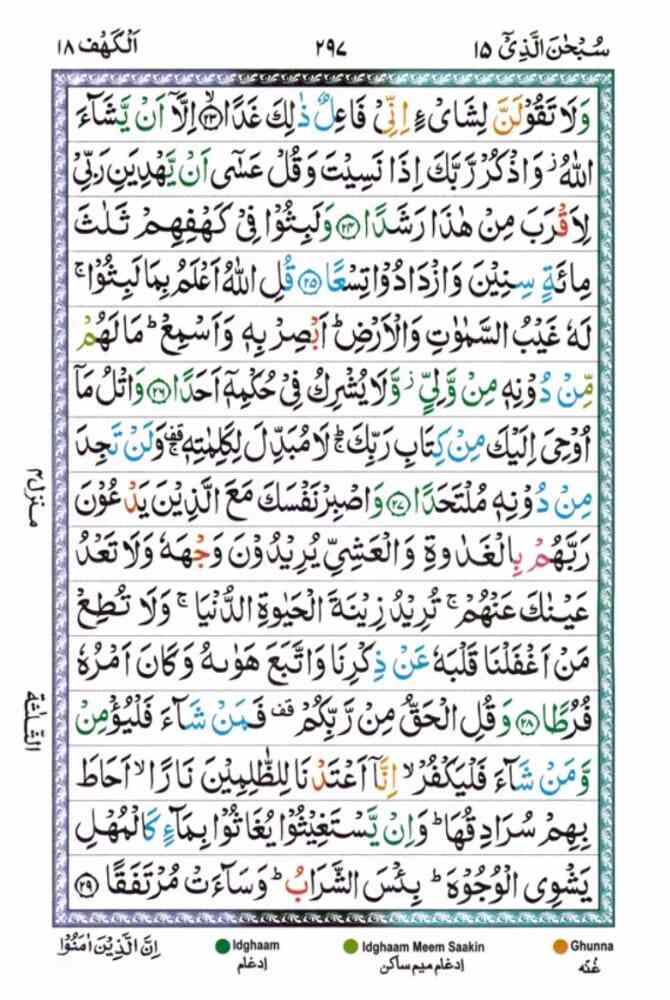 سُبْحٰنَ الَّذِیْۤ ۱۵ ۲۹۷ اَلْكَهْف ۱۸
وَلَا تَقُوْلَنَّ لِشَایْءٍ اِنِّیْ فَاعِلٌ ذٰلِكَ غَدًا ﴿۲۳﴾ۙ اِلَّاۤ اَنْ یَّشَآءَ
اللّٰهُ ؗ وَاذْكُرْ رَّبَّكَ اِذَا نَسِیْتَ وَقُلْ عَسٰۤی اَنْ یَّهْدِیَنِ رَبِّیْ
لِاَقْرَبَ مِنْ هٰذَا رَشَدًا ﴿۲۴﴾ وَلَبِثُوْا فِیْ كَهْفِهِمْ ثَلٰثَ
مِائَةٍ سِنِیْنَ وَازْدَادُوْا تِسْعًا ﴿۲۵﴾ قُلِ اللّٰهُ اَعْلَمُ بِمَا لَبِثُوْا ۚ
لَهٗ غَیْبُ السَّمٰوٰتِ وَالْاَرْضِ ؕ اَبْصِرْ بِهٖ وَاَسْمِعْ ؕ مَا لَهُمْ
مِّنْ دُوْنِهٖ مِنْ وَّلِیٍّ ؗ وَّلَا یُشْرِكُ فِیْ حُكْمِهٖۤ اَحَدًا ﴿۲۶﴾ وَاتْلُ مَاۤ
اُوْحِیَ اِلَیْكَ مِنْ كِتَابِ رَبِّكَ ؕۚ لَا مُبَدِّلَ لِكَلِمٰتِهٖ ۚ۫ وَلَنْ تَجِدَ
مِنْ دُوْنِهٖ مُلْتَحَدًا ﴿۲۷﴾ وَاصْبِرْ نَفْسَكَ مَعَ الَّذِیْنَ یَدْعُوْنَ
رَبَّهُمْ بِالْغَدٰوةِ وَالْعَشِیِّ یُرِیْدُوْنَ وَجْهَهٗ وَلَا تَعْدُ
عَیْنٰكَ عَنْهُمْ ۚ تُرِیْدُ زِیْنَةَ الْحَیٰوةِ الدُّنْیَا ۚ وَلَا تُطِعْ
مَنْ اَغْفَلْنَا قَلْبَهٗ عَنْ ذِكْرِنَا وَاتَّبَعَ هَوٰىهُ وَكَانَ اَمْرُهٗ
فُرُطًا ﴿۲۸﴾ وَقُلِ الْحَقُّ مِنْ رَّبِّكُمْ قف فَمَنْ شَآءَ فَلْیُؤْمِنْ
وَّمَنْ شَآءَ فَلْیَكْفُرْ ۙ اِنَّاۤ اَعْتَدْنَا لِلظّٰلِمِیْنَ نَارًا ۙ اَحَاطَ
بِهِمْ سُرَادِقُهَا ؕ وَاِنْ یَّسْتَغِیْثُوْا یُغَاثُوْا بِمَآءٍ كَالْمُهْلِ
یَشْوِی الْوُجُوْهَ ؕ بِئْسَ الشَّرَابُ ؕ وَسَآءَتْ مُرْتَفَقًا ﴿۲۹﴾
منزل ۴
الثلٰثة
Ghunna Idghaam Meem Saakin Idghaam اِنَّ الَّذِیْنَ اٰمَنُوْا
غنّہ ادغام میم ساکن ادغام